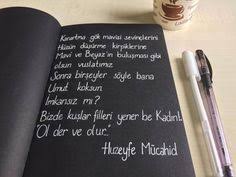 Karartma gök mavisi sevinçlerini
Hüzün düşürme kirpiklerine
Mavi ve Beyaz'ın buluşması gibi
olsun vuslatımız
Sonra birşeyler söyle bana
Umut koksun
İmkansız mı?
Bizde kuşlar filleri yener be Kadın!
"Ol der ve olur..."
Huzeyfe Mücahid